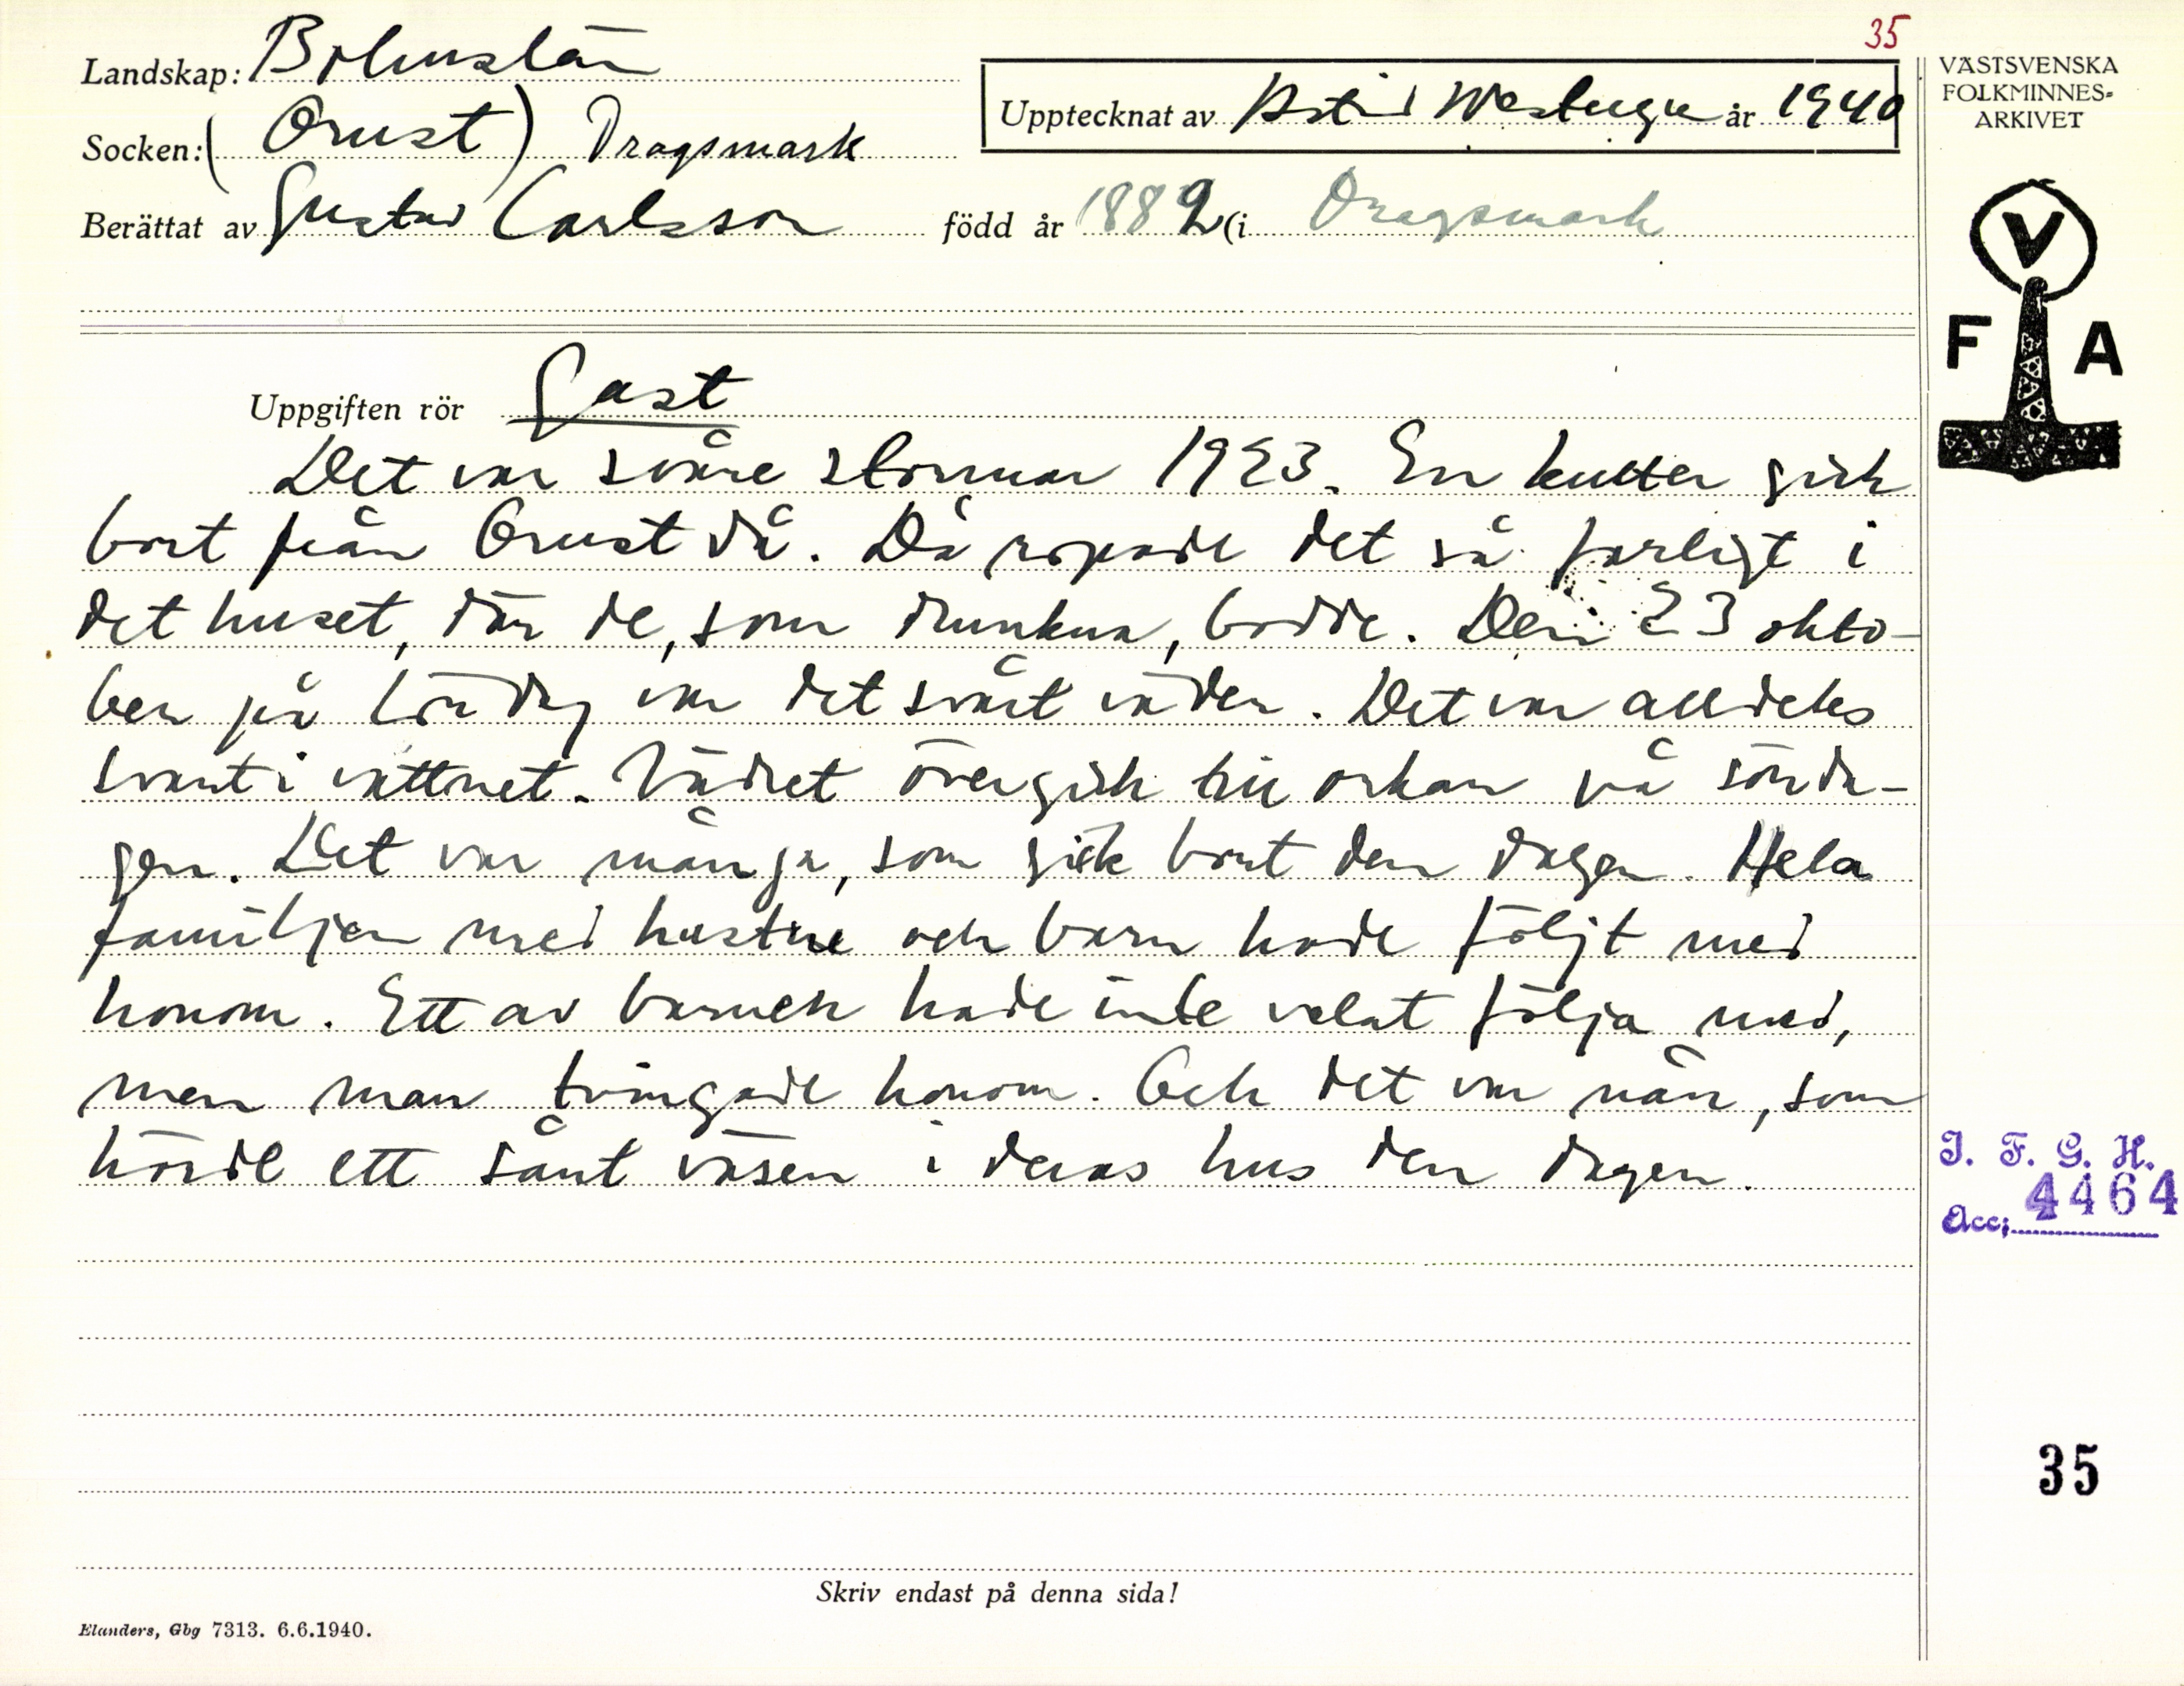 35
Landskap: Bohuslän
Socken: (Orust) Dragsmark
Berättat av Gustav Carlsson född år 1882 (i Dragsmark
Upptecknat av Astrid år 1940
VÄSTSVENSKA
FOLKMINNES-
ARKIVET
V
F A
Uppgiften rör Gast
Det var svåre stormar 1923. En kutter gick
bort från Orust då. Då ropade det så farligt i
det huset, där de, som drunkna, bodde. Den 23 okto-
ber på lördag var det svårt väder. Det var alldeles
svart i vattnet. Vädret övergick till orkan på sönda-
gen. Det var många, som gick bort den dagen. Hela
familjen med hustru och barn hade följt med
honom. Ett av barnen hade inte velat följa med,
men man tvingade honom. Och det var nån, som
hörde ett sånt väsen i deras hus den dagen.
I. F. G. H.
Acc; 4464
35
Skriv endast på denna sida!
Elanders, Gbg 7313. 6.6.1940.